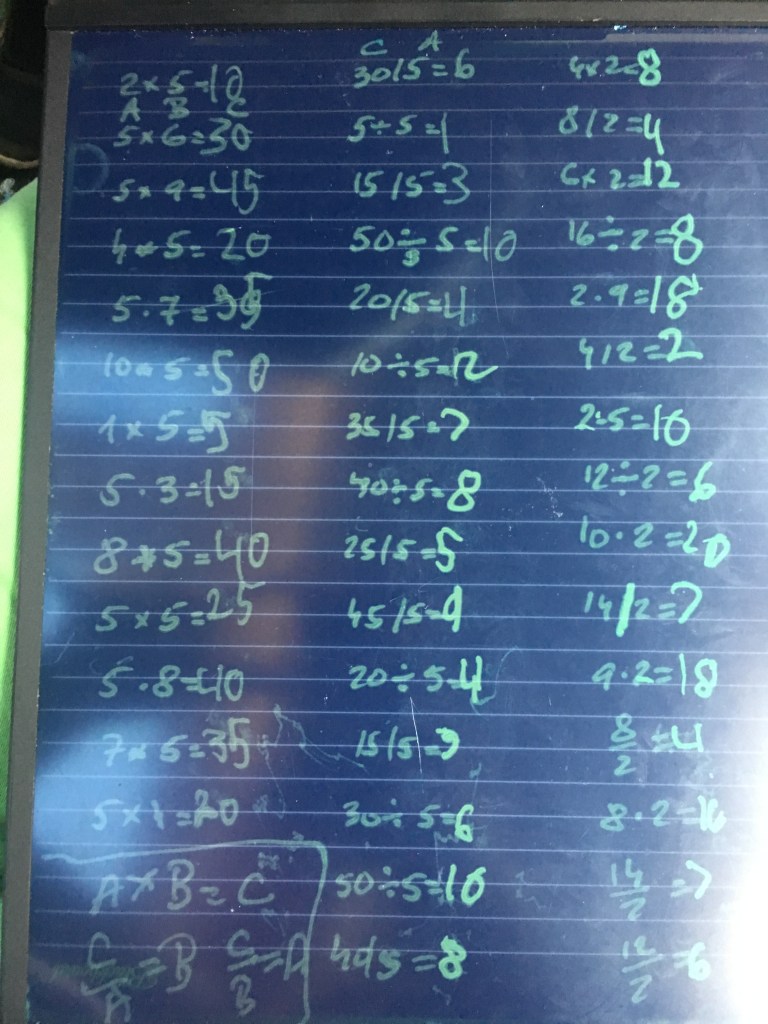 2×5=10
A B C
5×6=30
5×9=45
4×5=20
5·7=35
10×5=50
1×5=5
5·3=15
8×5=40
5×5=25
5·8=40
7×5=35
5×1=20
A×B=C
C/A=B C/B=A
C A
30/5=6
5÷5=1
15/5=3
50÷5=10
20/5=4
10÷5=2
35/5=7
40÷5=8
25/5=5
45/5=9
20÷5=4
15/5=3
30÷5=6
50÷5=10
40/5=8
4×2=8
8/2=4
6×2=12
16÷2=8
2·9=18
4/2=2
2·5=10
12÷2=6
10·2=20
14/2=7
9·2=18
8/2=4
8·2=16
14/2=7
12/2=6